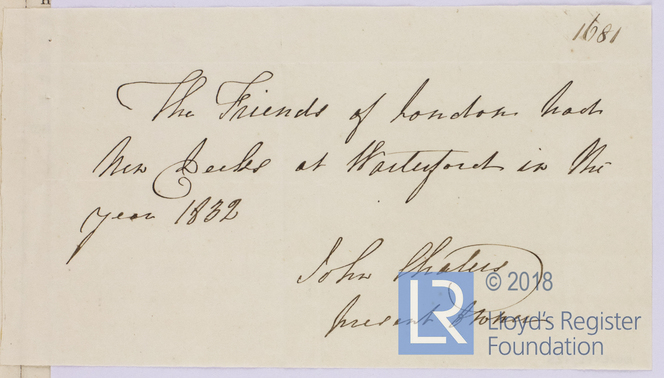 1681
The Friends of London had
New Decks at Waterford in the
year 1832
John Chaters
present Owner
LR
© 2018
Lloyd's Register
Foundation